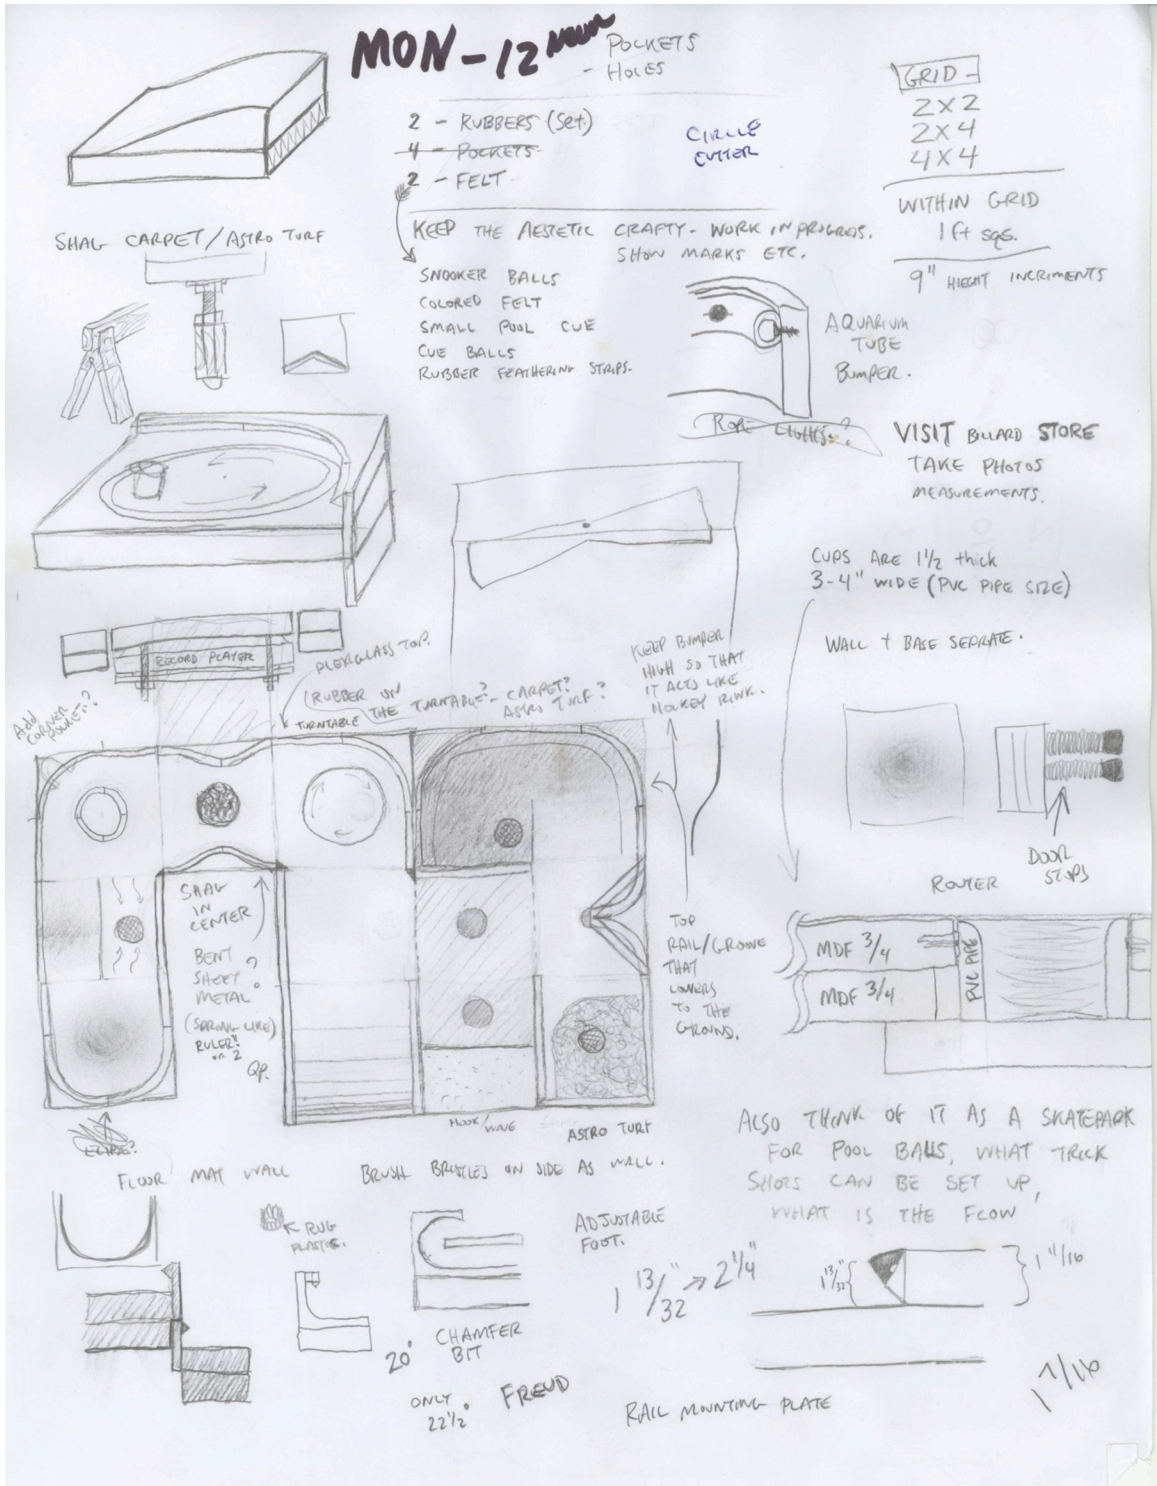 MON - 12 NOON
POCKETS
- HOLES
GRID -
2X2
2X4
4X4
WITHIN GRID
1 ft sqs.
9" HIEGHT INCRIMENTS
2 - RUBBERS (Set)
4 - POCKETS
2 - FELT
CIRCLE
CUTTER
KEEP THE AESTETIC CRAFTY - WORK IN PROGRESS.
SHOW MARKS ETC.
SNOOKER BALLS
COLORED FELT
SMALL POOL CUE
CUE BALLS
RUBBER FEATHERING STRIPS.
SHAG CARPET/ASTRO TURF
AQUARIUM
TUBE
BUMPER.
ROPE LIGHTS.?
VISIT BILLARD STORE
TAKE PHOTOS
MEASUREMENTS.
CUPS ARE 1 1/2 thick
3-4" WIDE (PVC PIPE SIZE)
WALL + BASE SEPRATE.
RECORD PLAYER
PLEXIGLASS TOP.
(RUBBER ON
THE TURNTABLE? - CARPET?
ASTRO TURF?
TURNTABLE
KEEP BUMPER
HIGH SO THAT
IT ACTS LIKE
HOCKEY RINK.
Add
CORNER
POCKET?
DOOR
STOPS
ROUTER
SHAG
IN
CENTER
BENT
SHEET
METAL?
(SPRING LIKE)
RULER?
or 2
QP.
TOP
RAIL/GROOVE
THAT
LOWERS
TO THE
GROUND.
MDF 3/4
MDF 3/4
PVC PIPE
HOOK/WAVE
ASTRO TURF
FLOOR MAT WALL
BRUSH BRISTLES ON SIDE AS WALL.
ALSO THINK OF IT AS A SKATEPARK
FOR POOL BALLS, WHAT TRICK
SHOTS CAN BE SET UP,
WHAT IS THE FLOW
K RUG
PLASTIC.
ADJUSTABLE
FOOT.
1 13/32" → 2 1/4"
1 13/32"
1 11/16
20° CHAMFER
BIT
ONLY
22 1/2°
FREUD
RAIL MOUNTING PLATE
1 7/16